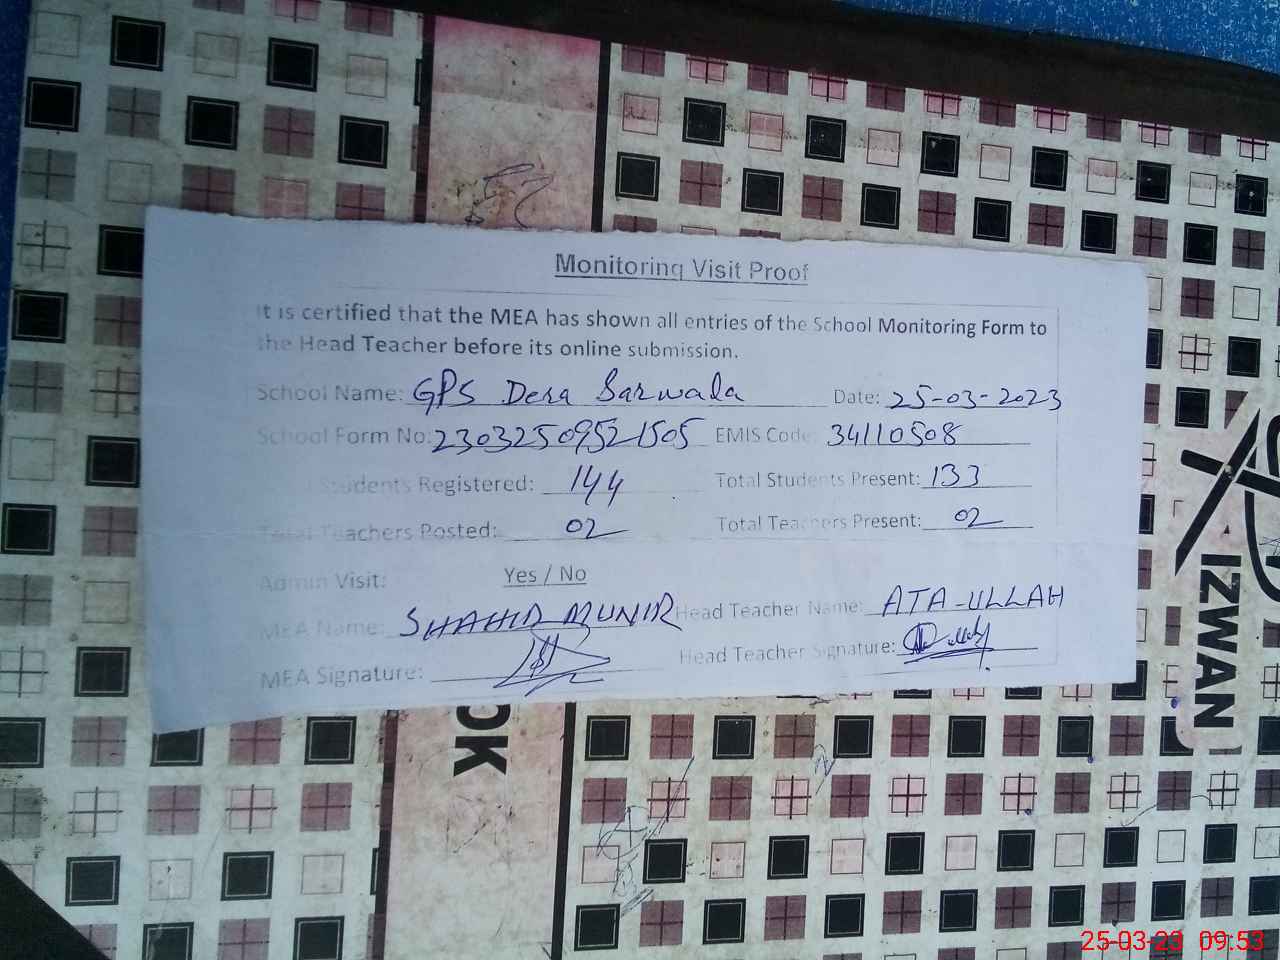 Monitoring Visit Proof
It is certified that the MEA has shown all entries of the School Monitoring Form to
the Head Teacher before its online submission.
School Name: GPS Dera Sarwala Date: 25-03-2023
School Form No: 23032509521505 EMIS Code: 34110508
Students Registered: 144 Total Students Present: 133
Total Teachers Posted: 02 Total Teachers Present: 02
Admin Visit: Yes / No
MEA Name: SHAHID MUNIR Head Teacher Name: ATA-ULLAH
MEA Signature: Head Teacher Signature:
IZWAN
OK
25-03-23 09:53